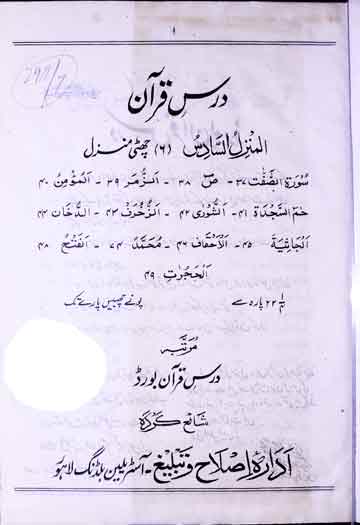 ۱
درسِ قرآن
المنزلُ السَّادِسُ (۶) چھٹی منزل
سُورَۃِ الصّٰفّٰت ۳۷۔ صٓ ۳۸۔ اَلزُّمَر ۳۹۔ اَلْمُؤمِن ۴۰
حٰم السَّجْدَۃ ۴۱۔ الشُّورٰی ۴۲۔ اَلزُّخْرُفْ ۴۳۔ الدُّخَان ۴۴
اَلْجَاثِیَۃ ۴۵۔ اَلْاَحْقَاف ۴۶۔ مُحَمَّدْ ۷۴۔ اَلْفَتْحُ ۴۸
اَلْحُجُرٰتِ ۴۹
۲۲ پارہ سے پونے چھبیس پارے تک
مرتبہ
درسِ قرآن بورڈ
شائع کردہ
ادارہ اصلاح و تبلیغ۔ آسٹریلین بلڈنگ لاہور